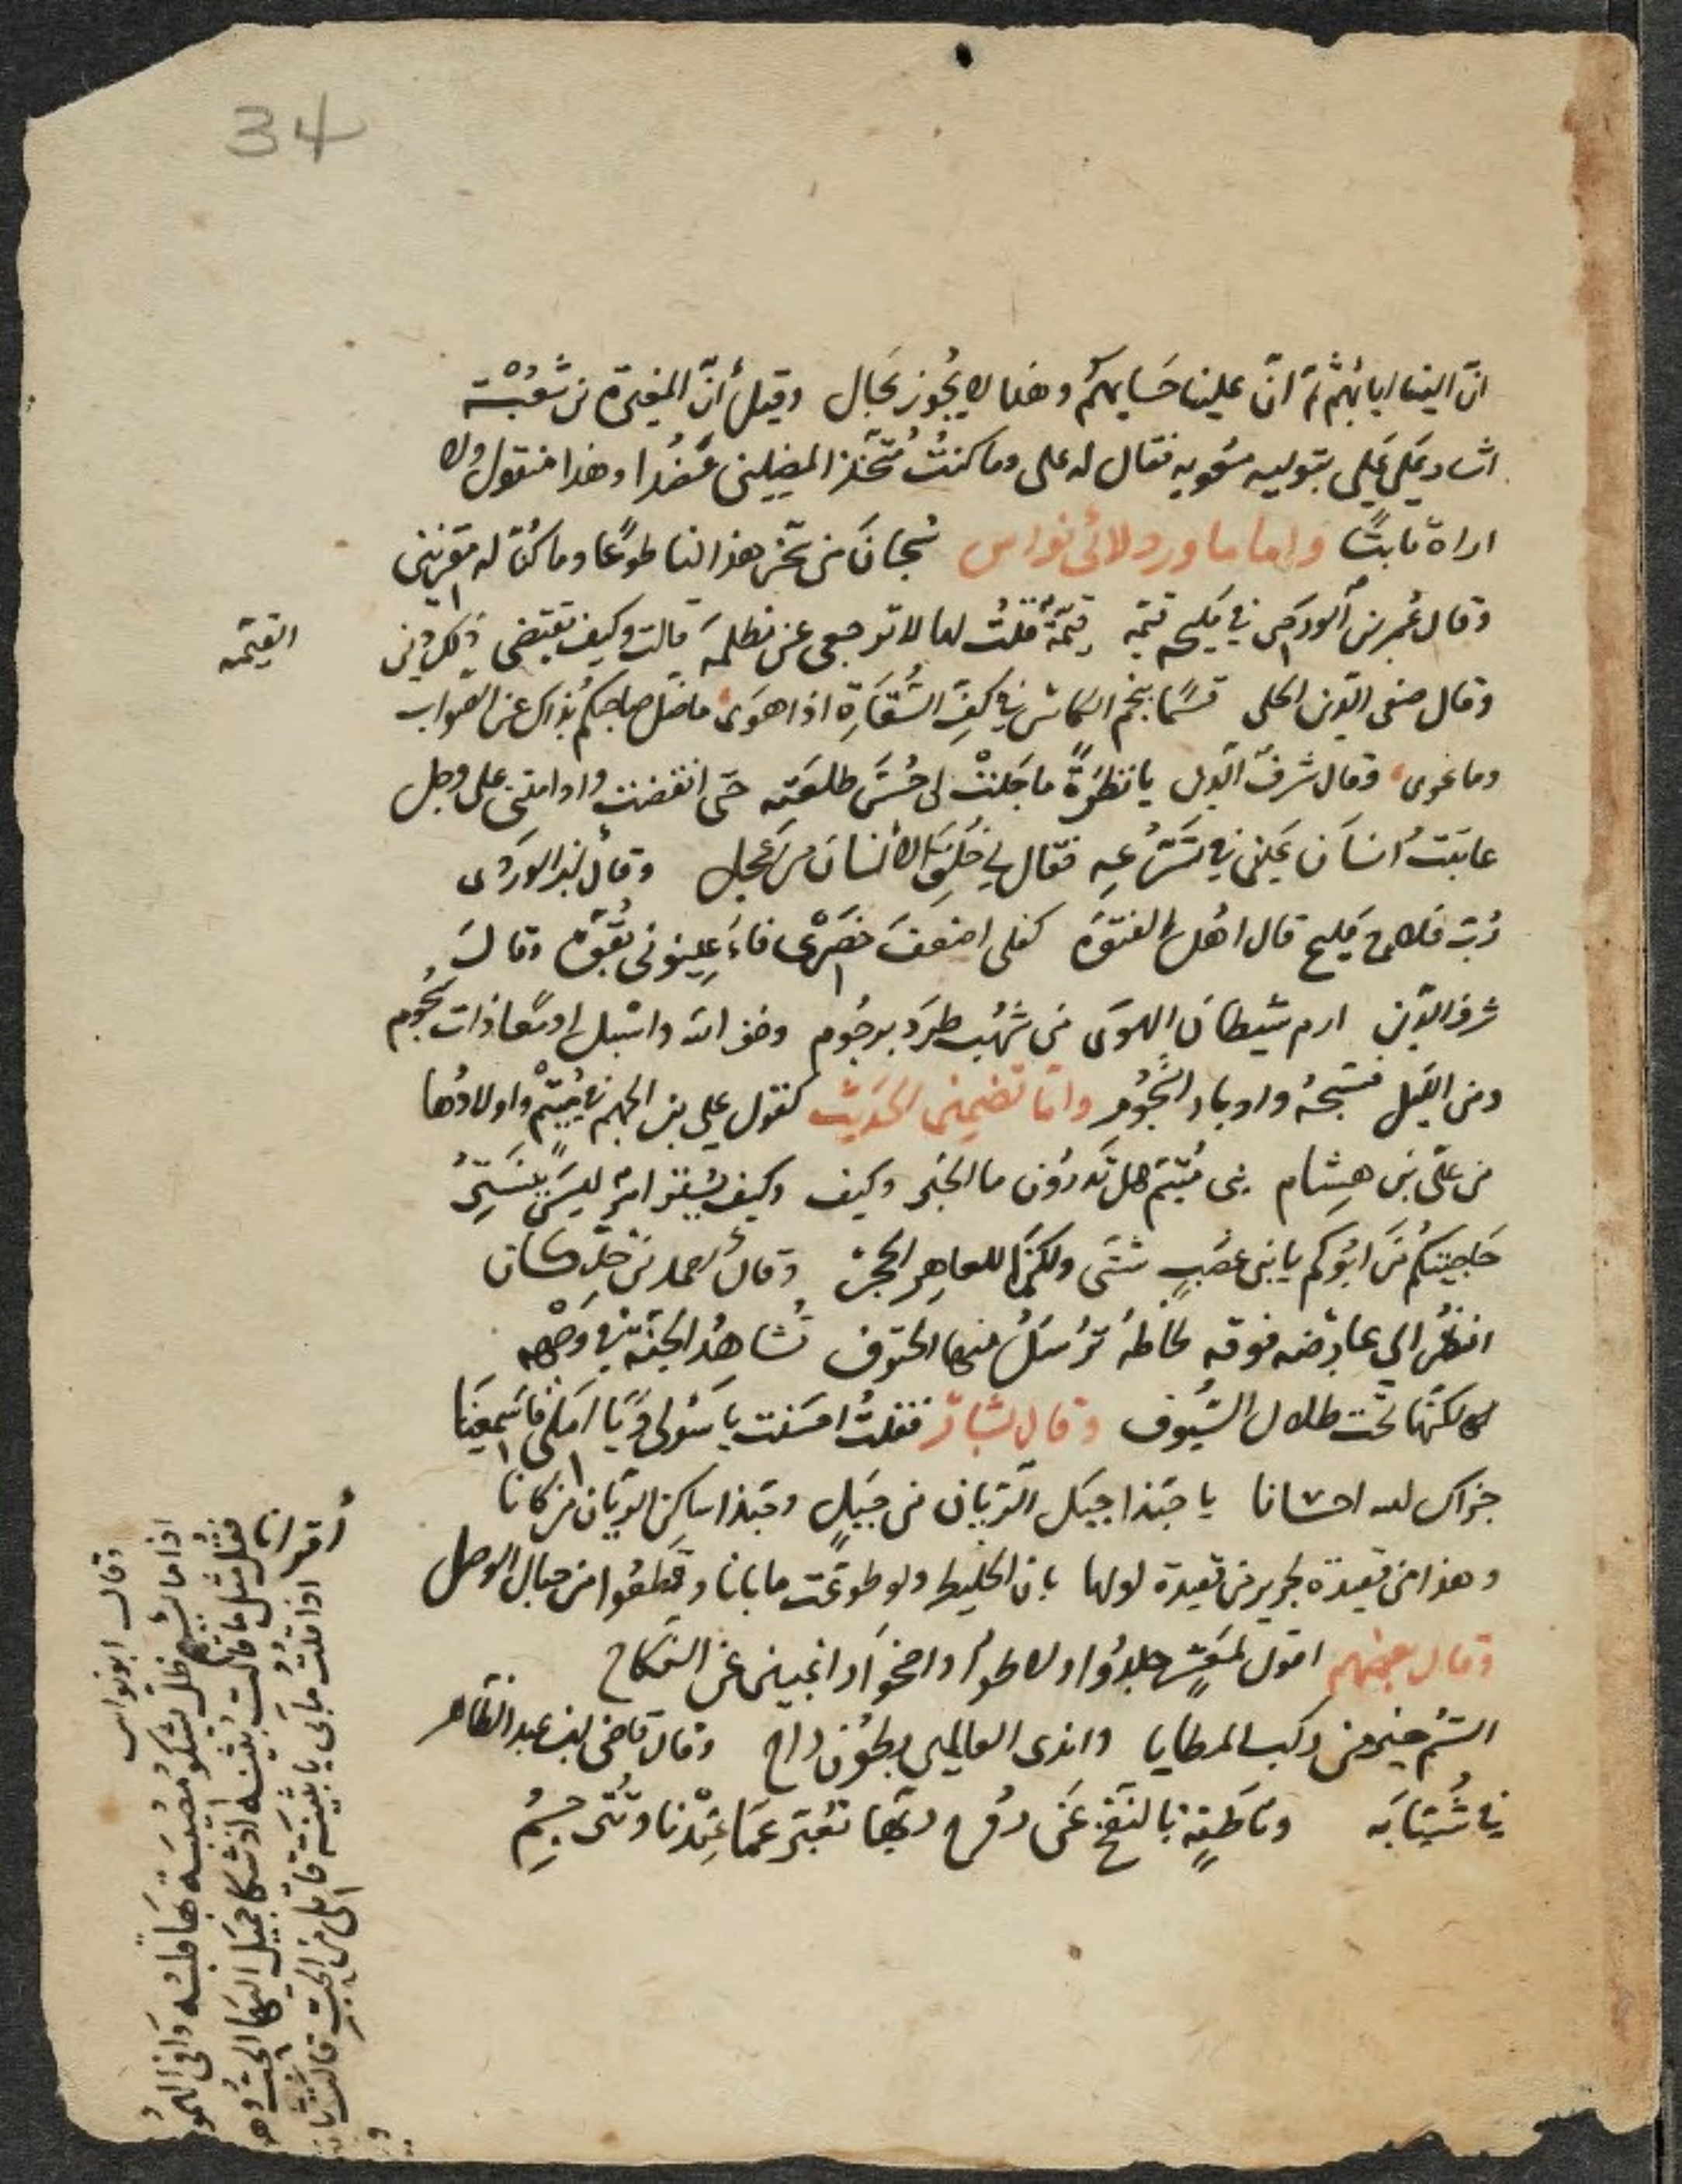 34
انّ الينا ايابهم ثم انّ علينا حسابهم وهذا لا يجوز بحال وقيل أنّ المغيرة بن شعبة
اشار على علي بتوليه معويه فقال له علي وما كنتُ مُتّخذ المضلين عضُدا وهذا منقول ولا
اراه ثابتًا واما ما ورد لابي نواس سُبحانَ من سخّر هذا لنا طوعًا وما كُنّا له مقرنين
وقال عُمر بن الوردي في مليح قيّمه قيّمةٌ قلتُ لها لا ترجعي عن مظلمه قالت وكيف تقتضي ذلك دين
القيّمه
وقال صفي الدين الحلي قسمًا بنجم الكاس في كفّ السُّقاةِ اذا هوى ما ضلّ صاحبكم بذاك عن الصواب
وما غوى وقال شرف الدين يا نظرةً ما جلتْ لي حُسنَ طلعته حتى انقضت وادامتني على وجل
عاتبتُ انسانَ عيني في تسَرّعه فقال لي خُلِقَ الانسان من عجل وقال ابن الوردي
رُبّ فلاحٍ مليح قال يا اهل الفتوّه كفلي اضعفَ خصري فاعينوني بقوّه وقال
شرف الدين ارم شيطان الهوى من شهب طرد برجوم وخف الله واسبل ادمُعا ذات سجوم
ومن الليل فسبّحهُ وادبار النجوم وامّا تضمين الحديث كقول علي بن الجهم في مُتيّمْ واولادها
من علي بن هشام بني مُتيّم هل تدرون ما الخبر وكيف وكيف يُستر امرٌ ليس يستترُ
حاجيتكم من ابوكم يا بني عصبٍ شتى ولكنما للعاهر الحجرُ وقال أحمد بن خلّكان
انظُر الي عارضه فوقه لحاظهُ تُرسَلُ منها الحتوف تُشاهد الجنّة في وجهه
لكنها تحت ظلال السُّيوف وقال بشار فقلتُ احسنت يا سُولي ويا املي فاسمعينا
جزاك الله احسانا يا حبّذا جبل الريّان من جبلٍ وحبذا ساكن الريّان من كانا
وهذا من قصيدة لجرير من قصيدة اولها بان الخليط ولو طوعت ما بانا وقطّعوا من حبال الوصل
أقرانا
وقال بعضهم اقول لمعشرٍ جلدُوا ولاطوا واضحَوا راغبين عن النكاح
الستُم خير من ركب المطايا واندى العالمين بطُون راح وقال قاضي ابن عبد الظاهر
في شُبّابَه وناطقةٍ بالنفخ عن رُوح ربّها تُعبّر عمّا عندنا وتُترجمُ
وقال ابو نواس
اذا ما
فقُل مثل ما قالت بثينة اذ شكا جميل اليها الحبّ
اذا قلت ما بي يا بثينة قاتلي من الحبّ قالت ثابت